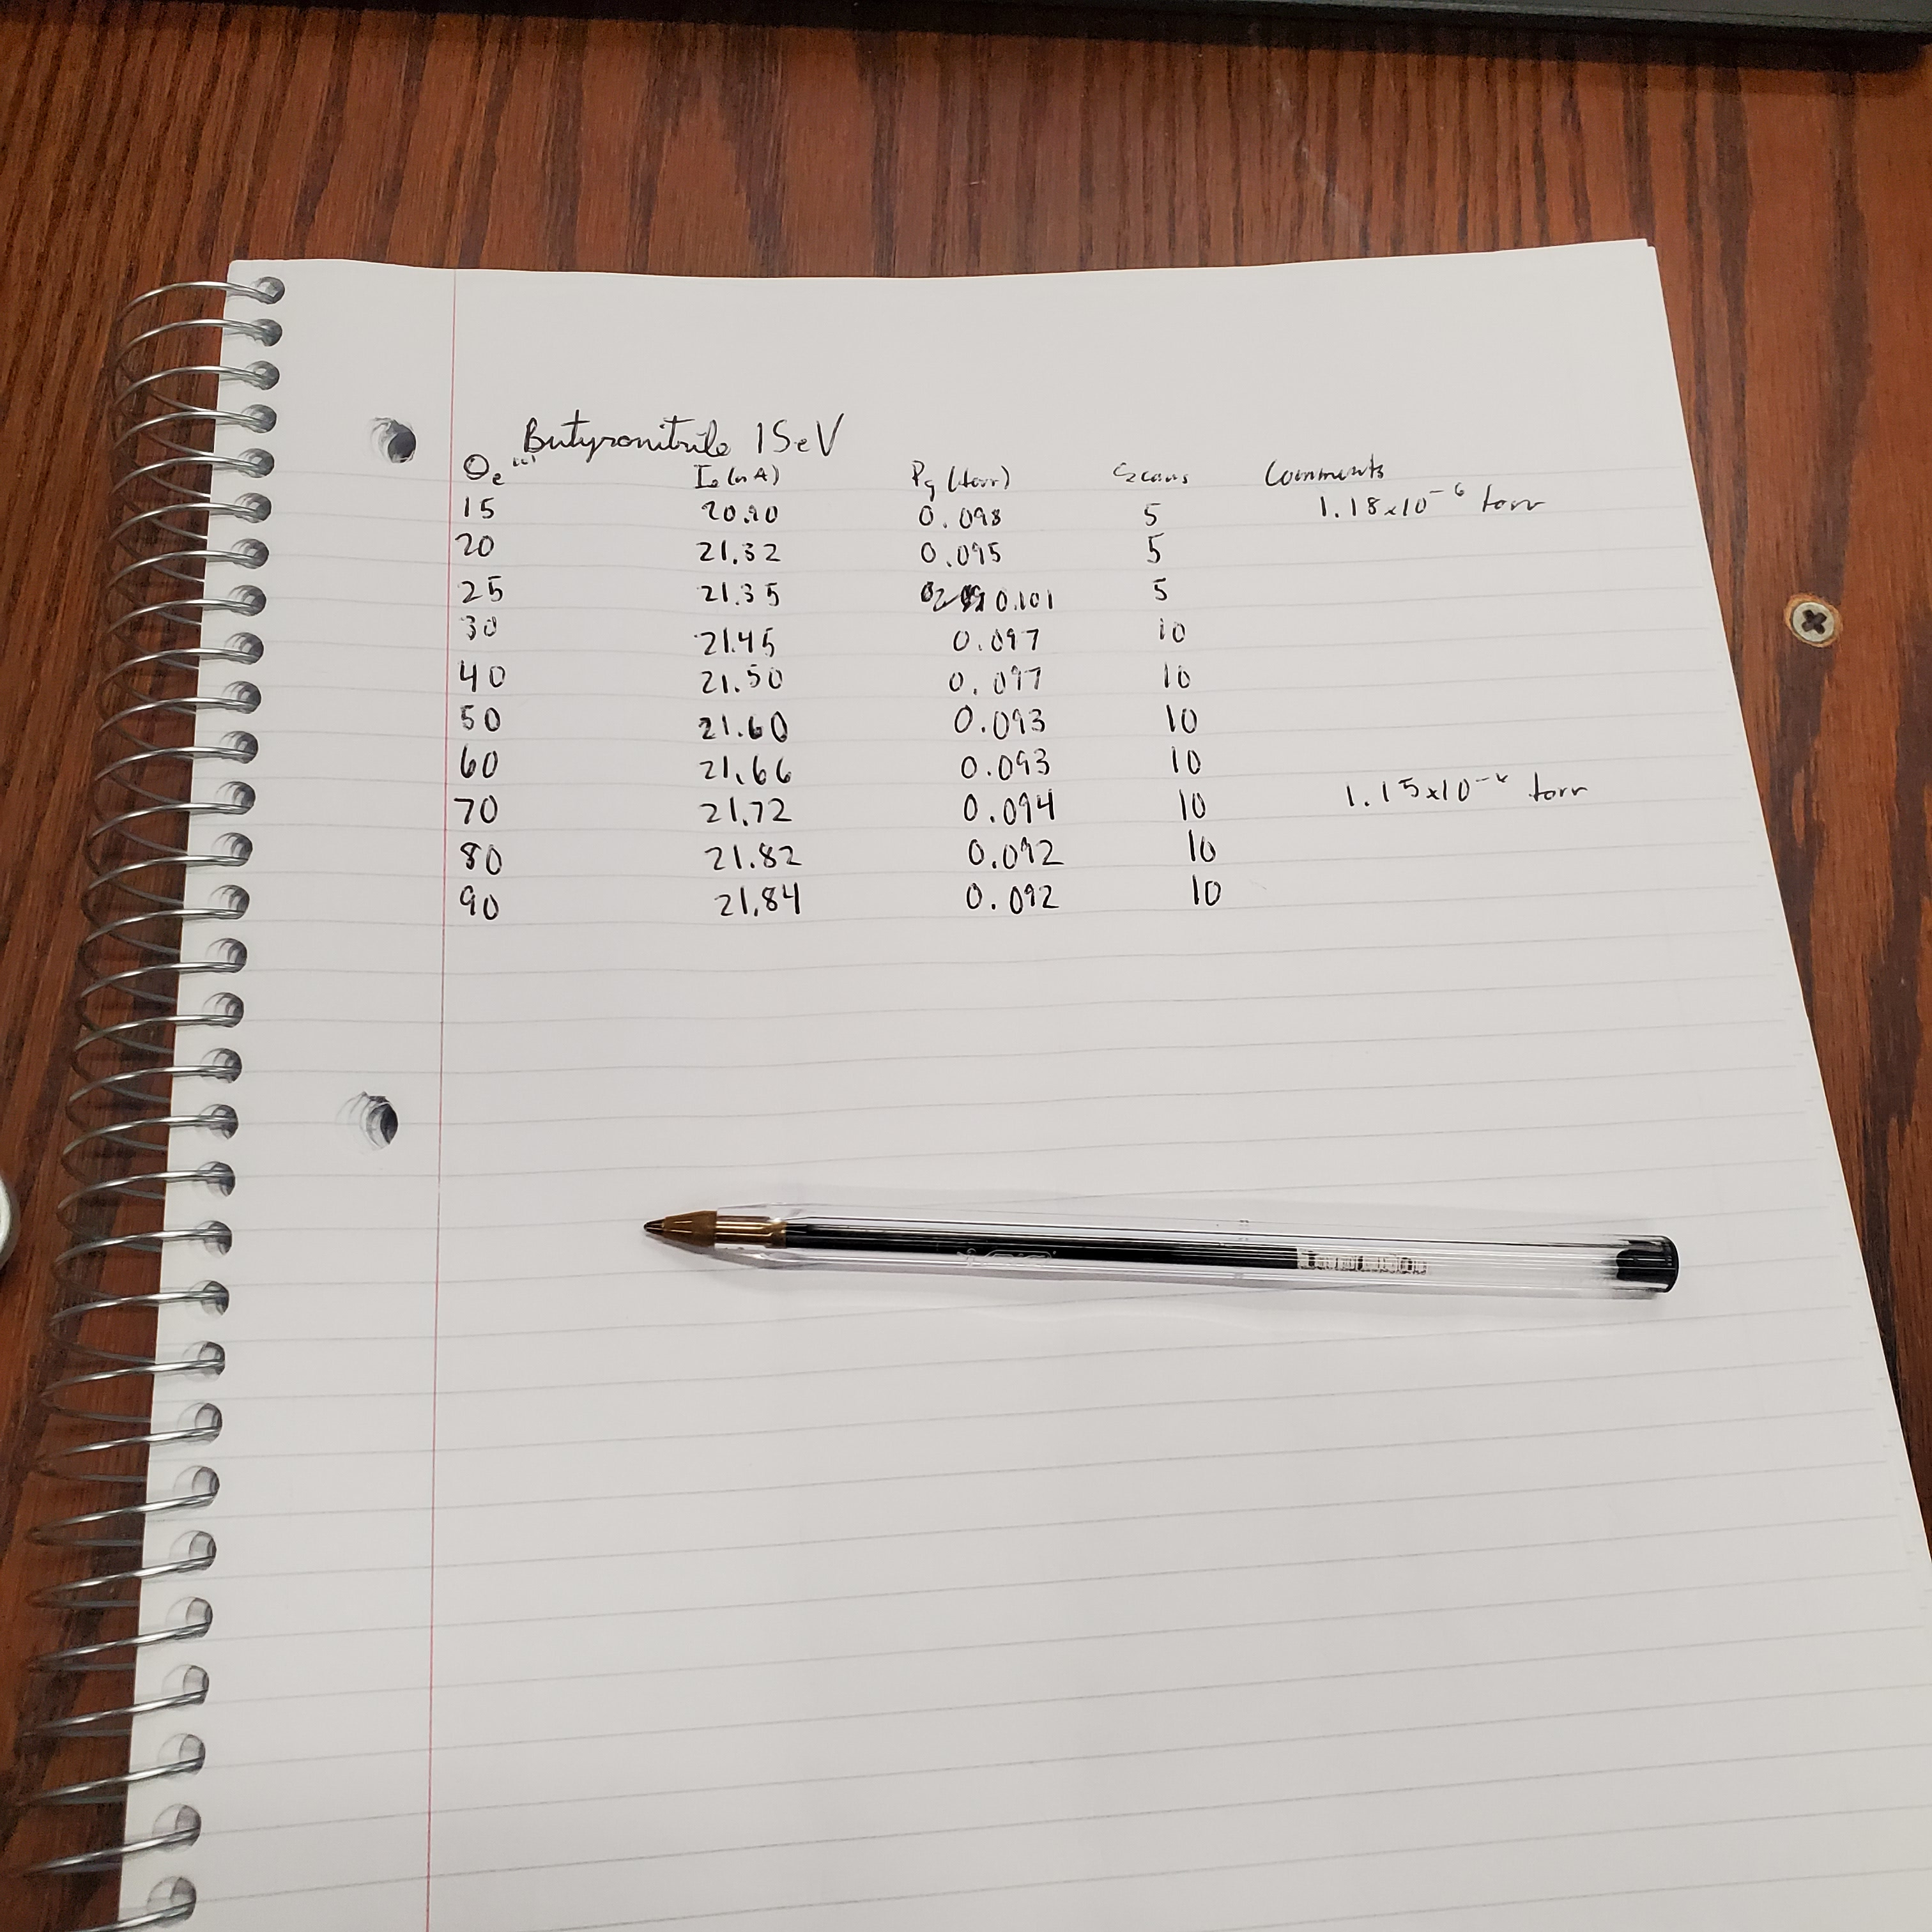 Butyronitrile 15eV
Θe I₀(nA) Pg (torr) Scans Comments
15 20.90 0.098 5 1.18x10⁻⁶ torr
20 21.32 0.095 5
25 21.35 0.101 5
30 21.45 0.097 10
40 21.50 0.097 10
50 21.60 0.093 10
60 21.66 0.093 10
70 21.72 0.094 10 1.15x10⁻⁶ torr
80 21.82 0.092 10
90 21.84 0.092 10